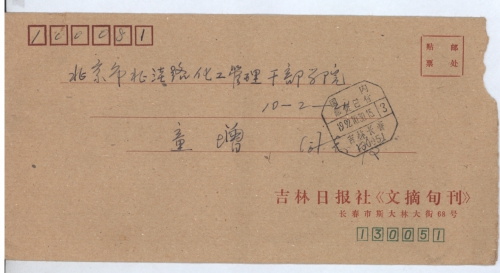 100081
贴邮
票处
北京市北洼路化工管理干部学院
10-2-
童增 (收)
吉林日报社《文摘旬刊》
长春市斯大林大街68号
130051